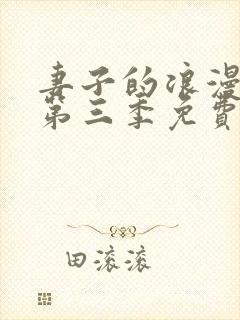 妻子的浪漫
第三季免費
田滚滚